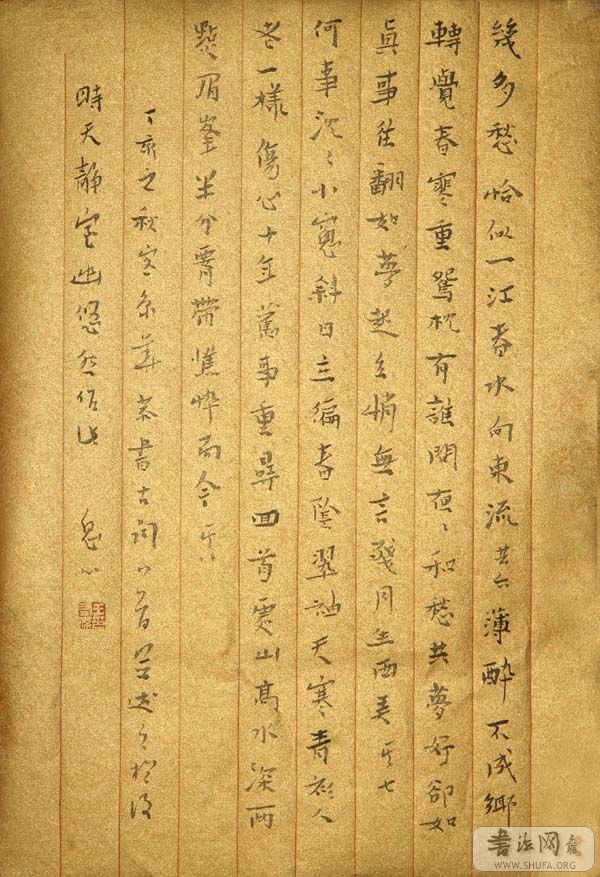 幾多愁恰似一江春水向東流 其六 薄醉不成鄉
轉覺春寒重鴛枕有誰同夜〻和愁共夢好卻如
真事往翻如夢起立悄無言殘月生西弄 其七
何事沉〻小窗斜日立徧春陰翠袖天寒青衫人
老一樣傷心十年舊事重尋回首處山高水深兩
點眉峯半分腰帶憔悴而今 其八
丁亥之秋客京華恭書古詞八首
時天靜室幽悠然
書法网
WWW.SHUFA.ORG